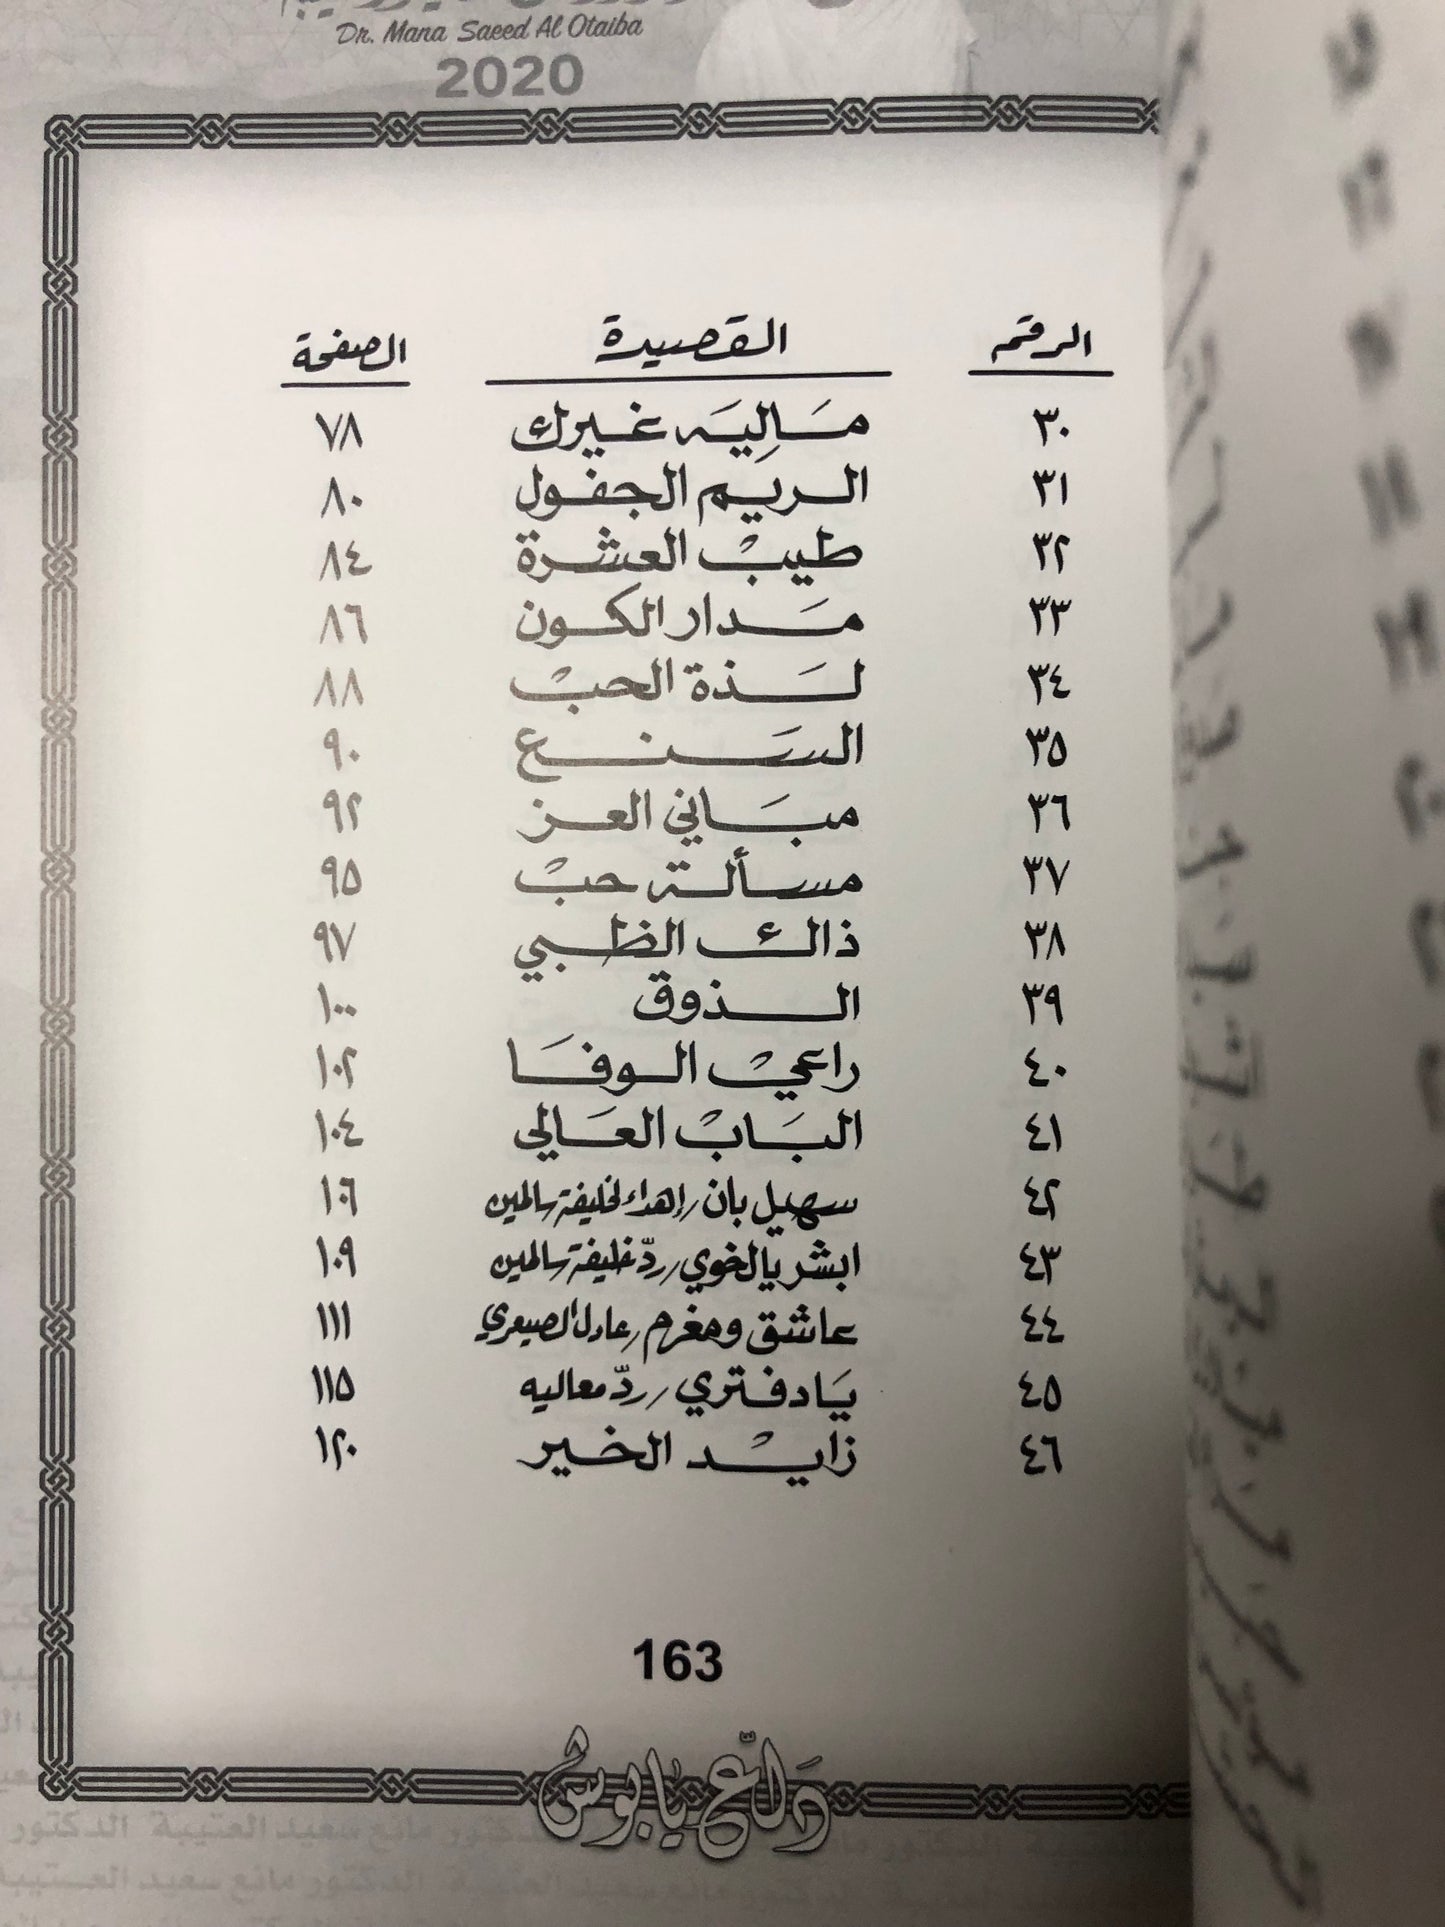 Dr. Mana Saeed Al Otaiba
2020
الرقم القصيدة الصفحة
٣٠ مَالِيَه غيرك ٧٨
٣١ الريم الجفول ٨٠
٣٢ طيبْ العشرة ٨٤
٣٣ مَدار الكون ٨٦
٣٤ لَذة الحبْ ٨٨
٣٥ السَنع ٩٠
٣٦ مبَاني العز ٩٢
٣٧ مسألة حبْ ٩٥
٣٨ ذاك الظبي ٩٧
٣٩ الذوق ١٠٠
٤٠ راعيْ الوفَا ١٠٢
٤١ البَابْ العَالي ١٠٤
٤٢ سهيل بان / إهداء لخليفة سالمين ١٠٦
٤٣ ابشر يالخوي / ردّ خليفة سالمين ١٠٩
٤٤ عاشق ومغرم / عادل الصيعري ١١١
٤٥ يَادفتري / ردّ معاليه ١١٥
٤٦ زايدْ الخير ١٢٠
163
دلّع يابوش
مانع سعيد العتيبة الدكتور
الدكتور مانع سعيد العتيبة